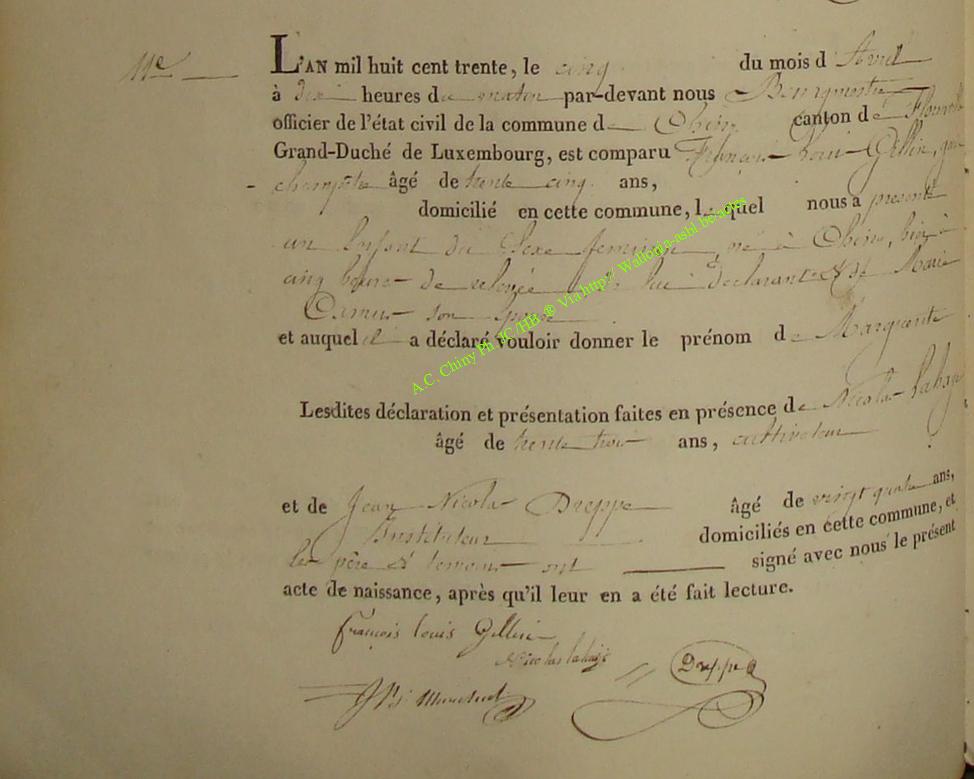 11e
L'AN mil huit cent trente, le cinq du mois d Avril
à dix heures du matin par-devant nous Bourgmestre
officier de l'état civil de la commune de Chiny canton de Florenville
Grand-Duché de Luxembourg, est comparu François Louis Gillin, garde
champêtre âgé de trente cinq ans,
domicilié en cette commune, lequel nous a présenté
un Enfant du Sexe féminin, né à Chiny, hier à
cinq heures de relevée de lui déclarant & de Marie
Camus son Epouse
et auquel il a déclaré vouloir donner le prénom de Marguerite
Lesdites déclaration et présentation faites en présence de Nicolas Lahaye
âgé de trente trois ans, cultivateur
et de Jean Nicolas Dreppe âgé de vingt quatre ans,
Instituteur domiciliés en cette commune, et
les père & témoins ont signé avec nous le présent
acte de naissance, après qu'il leur en a été fait lecture.
françois louis Gillin
Nicolas lahaye
Dreppe
A.C. Chiny Ph JC/HB ® Via http// Wallonia-asbl.be/actes